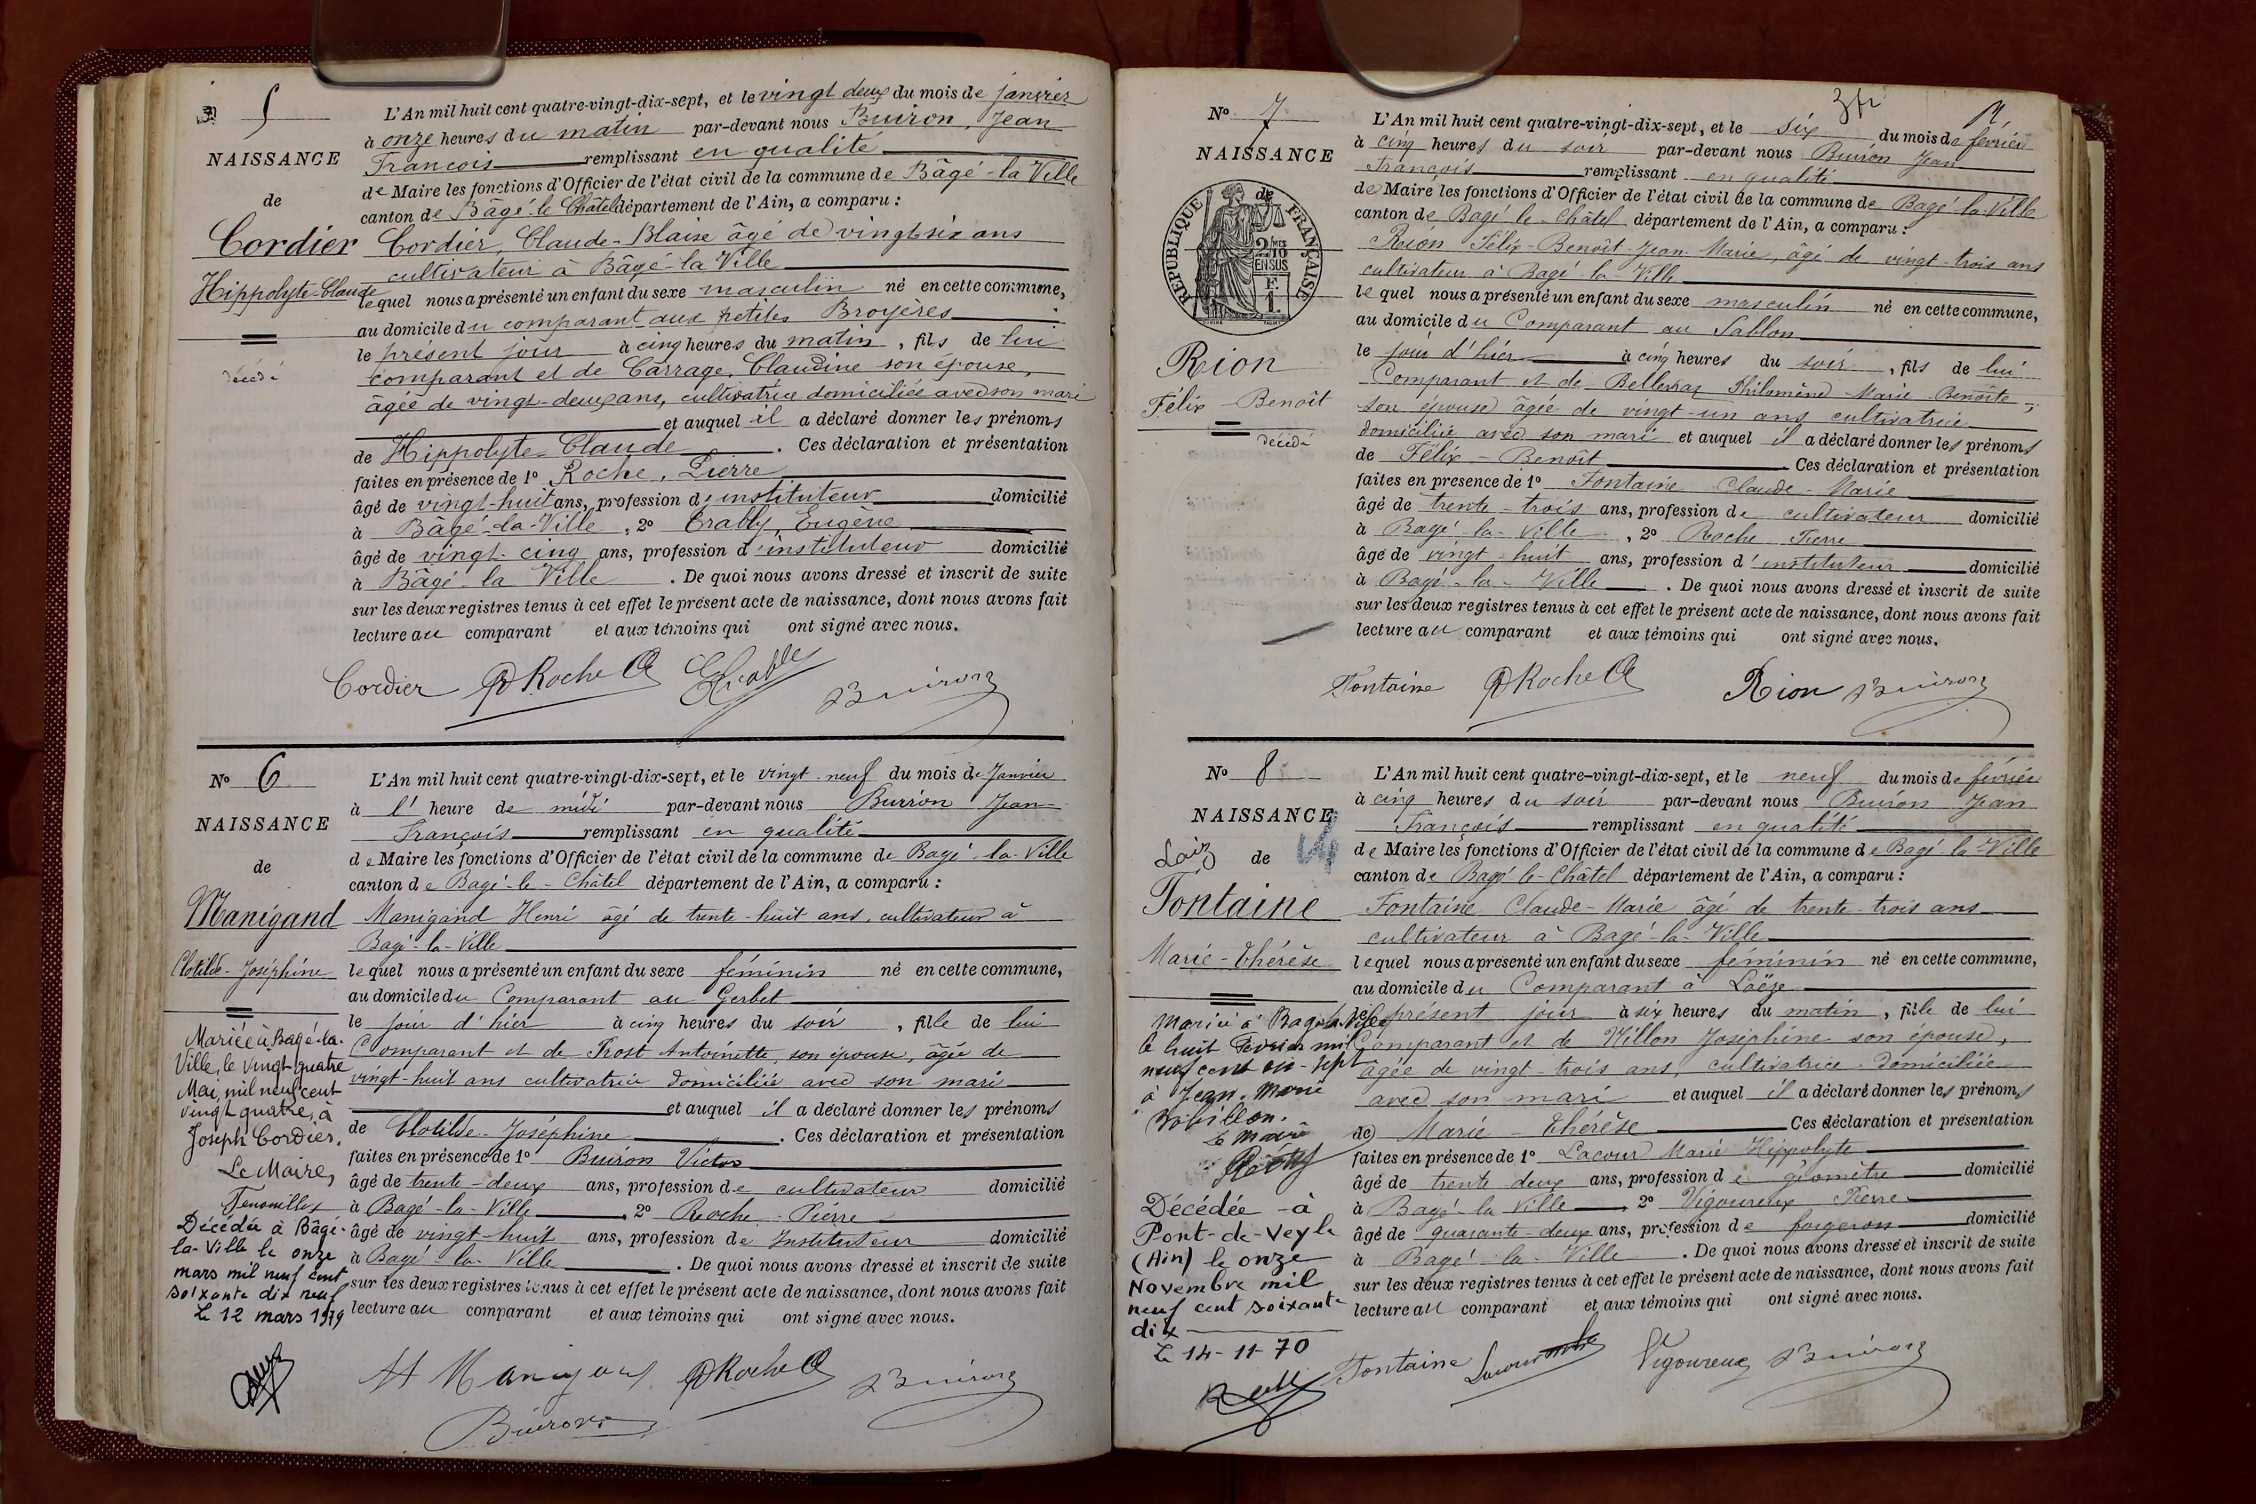 5
NAISSANCE
de
Cordier
Hippolyte-Claude
décédé
L'An mil huit cent quatre-vingt-dix-sept, et le vingt deux du mois de janvier
à onze heures du matin par-devant nous Buiron, Jean
François remplissant en qualité
de Maire les fonctions d'Officier de l'état civil de la commune de Bâgé-la Ville
canton de Bâgé-le Châtel département de l'Ain, a comparu :
Cordier, Claude-Blaise âgé de vingt-six ans
cultivateur à Bâgé-la Ville
lequel nous a présenté un enfant du sexe masculin né en cette commune,
au domicile du comparant aux petites Broyères
le présent jour à cinq heures du matin, fils de lui
comparant et de Carrage, Claudine son épouse,
âgée de vingt-deux ans, cultivatrice domiciliée avec son mari
et auquel il a déclaré donner les prénoms
de Hippolyte-Claude. Ces déclaration et présentation
faites en présence de 1° Roche, Pierre
âgé de vingt-huit ans, profession d'instituteur domicilié
à Bâgé-la-Ville, 2° Crably, Eugène
âgé de vingt-cinq ans, profession d'instituteur domicilié
à Bâgé-la Ville. De quoi nous avons dressé et inscrit de suite
sur les deux registres tenus à cet effet le présent acte de naissance, dont nous avons fait
lecture au comparant et aux témoins qui ont signé avec nous.
Cordier P Roche Buiron
N° 6
NAISSANCE
de
Manigand
Clotilde-Joséphine
Mariée à Bagé-la-
Ville, le vingt quatre
Mai, mil neuf cent
vingt quatre, à
Joseph Cordier.
Le Maire,
Décédée à Bâgé-
la-Ville le onze
mars mil neuf cent
soixante dix neuf
Le 12 mars 1979
L'An mil huit cent quatre-vingt-dix-sept, et le vingt-neuf du mois de Janvier
à l'heure de midi par-devant nous Buiron Jean
François remplissant en qualité
de Maire les fonctions d'Officier de l'état civil de la commune de Bagé-la-Ville
canton de Bagé-le-Châtel département de l'Ain, a comparu :
Manigand Henri âgé de trente-huit ans, cultivateur à
Bagé-la-Ville
lequel nous a présenté un enfant du sexe féminin né en cette commune,
au domicile du Comparant au Gerbet
le jour d'hier à cinq heures du soir, fille de lui
Comparant et de Prost Antoinette, son épouse, âgée de
vingt-huit ans cultivatrice domiciliée avec son mari
et auquel il a déclaré donner les prénoms
de Clotilde-Joséphine. Ces déclaration et présentation
faites en présence de 1° Buiron Victor
âgé de trente-deux ans, profession de cultivateur domicilié
à Bagé-la-Ville, 2° Roche Pierre
âgé de vingt-huit ans, profession de Instituteur domicilié
à Bagé-la-Ville. De quoi nous avons dressé et inscrit de suite
sur les deux registres tenus à cet effet le présent acte de naissance, dont nous avons fait
lecture au comparant et aux témoins qui ont signé avec nous.
H Manigand P Roche Buiron
Buiron
3 fr
N° 7
NAISSANCE
de
RÉPUBLIQUE FRANÇAISE
2/10 EN SUS
F. 1.
Rion
Félix-Benoît
décédé
L'An mil huit cent quatre-vingt-dix-sept, et le six du mois de février
à cinq heures du soir par-devant nous Buiron Jean
François remplissant en qualité
de Maire les fonctions d'Officier de l'état civil de la commune de Bagé-la-Ville
canton de Bagé-le-Châtel département de l'Ain, a comparu :
Rion Félix-Benoît-Jean-Marie, âgé de vingt-trois ans
cultivateur à Bagé-la-Ville
lequel nous a présenté un enfant du sexe masculin né en cette commune,
au domicile du Comparant au Sablon
le jour d'hier à cinq heures du soir, fils de lui
Comparant et de Philomène-Marie-Benoîte,
son épouse âgée de vingt-un ans cultivatrice
domiciliée avec son mari et auquel il a déclaré donner les prénoms
de Félix-Benoît. Ces déclaration et présentation
faites en présence de 1° Fontaine Claude-Marie
âgé de trente-trois ans, profession de cultivateur domicilié
à Bagé-la-Ville, 2° Roche Pierre
âgé de vingt-huit ans, profession d'instituteur domicilié
à Bagé-la-Ville. De quoi nous avons dressé et inscrit de suite
sur les deux registres tenus à cet effet le présent acte de naissance, dont nous avons fait
lecture au comparant et aux témoins qui ont signé avec nous.
Fontaine P Roche Rion Buiron
N° 8
NAISSANCE
Laiz
de
Fontaine
Marie-Thérèse
Mariée à Bagé-la-Ville
le huit Février mil
neuf cent dix-sept
à Jean-Marie
Robillon.
Le Maire
Décédée à
Pont-de-Veyle
(Ain) le onze
Novembre mil
neuf cent soixante
dix
Le 14-11-70
L'An mil huit cent quatre-vingt-dix-sept, et le neuf du mois de février
à cinq heures du soir par-devant nous Buiron Jean
François remplissant en qualité
de Maire les fonctions d'Officier de l'état civil de la commune de Bagé-la-Ville
canton de Bagé-le-Châtel département de l'Ain, a comparu :
Fontaine Claude-Marie âgé de trente-trois ans
cultivateur à Bagé-la-Ville
lequel nous a présenté un enfant du sexe féminin né en cette commune,
au domicile du Comparant à Loëze
le présent jour à six heures du matin, fille de lui
Comparant et de Millon Joséphine son épouse,
âgée de vingt-trois ans, cultivatrice domiciliée
avec son mari et auquel il a déclaré donner les prénoms
de Marie-Thérèse Ces déclaration et présentation
faites en présence de 1° Lacour Marie Hippolyte
âgé de trente deux ans, profession de géomètre domicilié
à Bagé la Ville, 2° Vigoureux Pierre
âgé de quarante-deux ans, profession de forgeron domicilié
à Bagé-la-Ville. De quoi nous avons dressé et inscrit de suite
sur les deux registres tenus à cet effet le présent acte de naissance, dont nous avons fait
lecture au comparant et aux témoins qui ont signé avec nous.
Fontaine Lacour Vigoureux Buiron